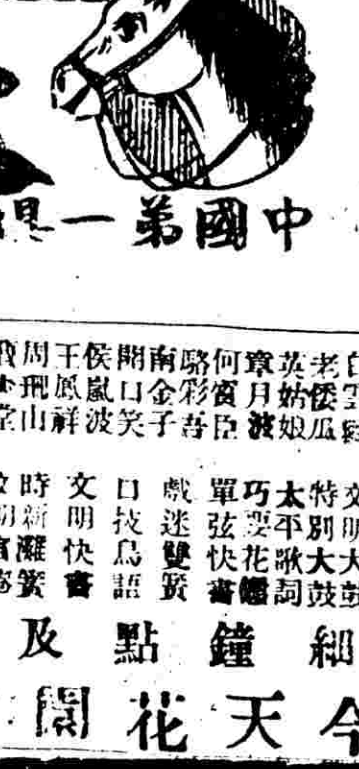 中國弟一
老倭瓜
英姑娘
章月波
何質臣
駱彩吾
南金子
開口笑
侯嵐波
王鳳祥
周飛山
文明大鼓
特別大鼓
太平歌詞
巧耍花罎
單弦快書
戲迷雙簧
口技鳥語
文明快書
時新灘簧
細鐘點及
今天花園